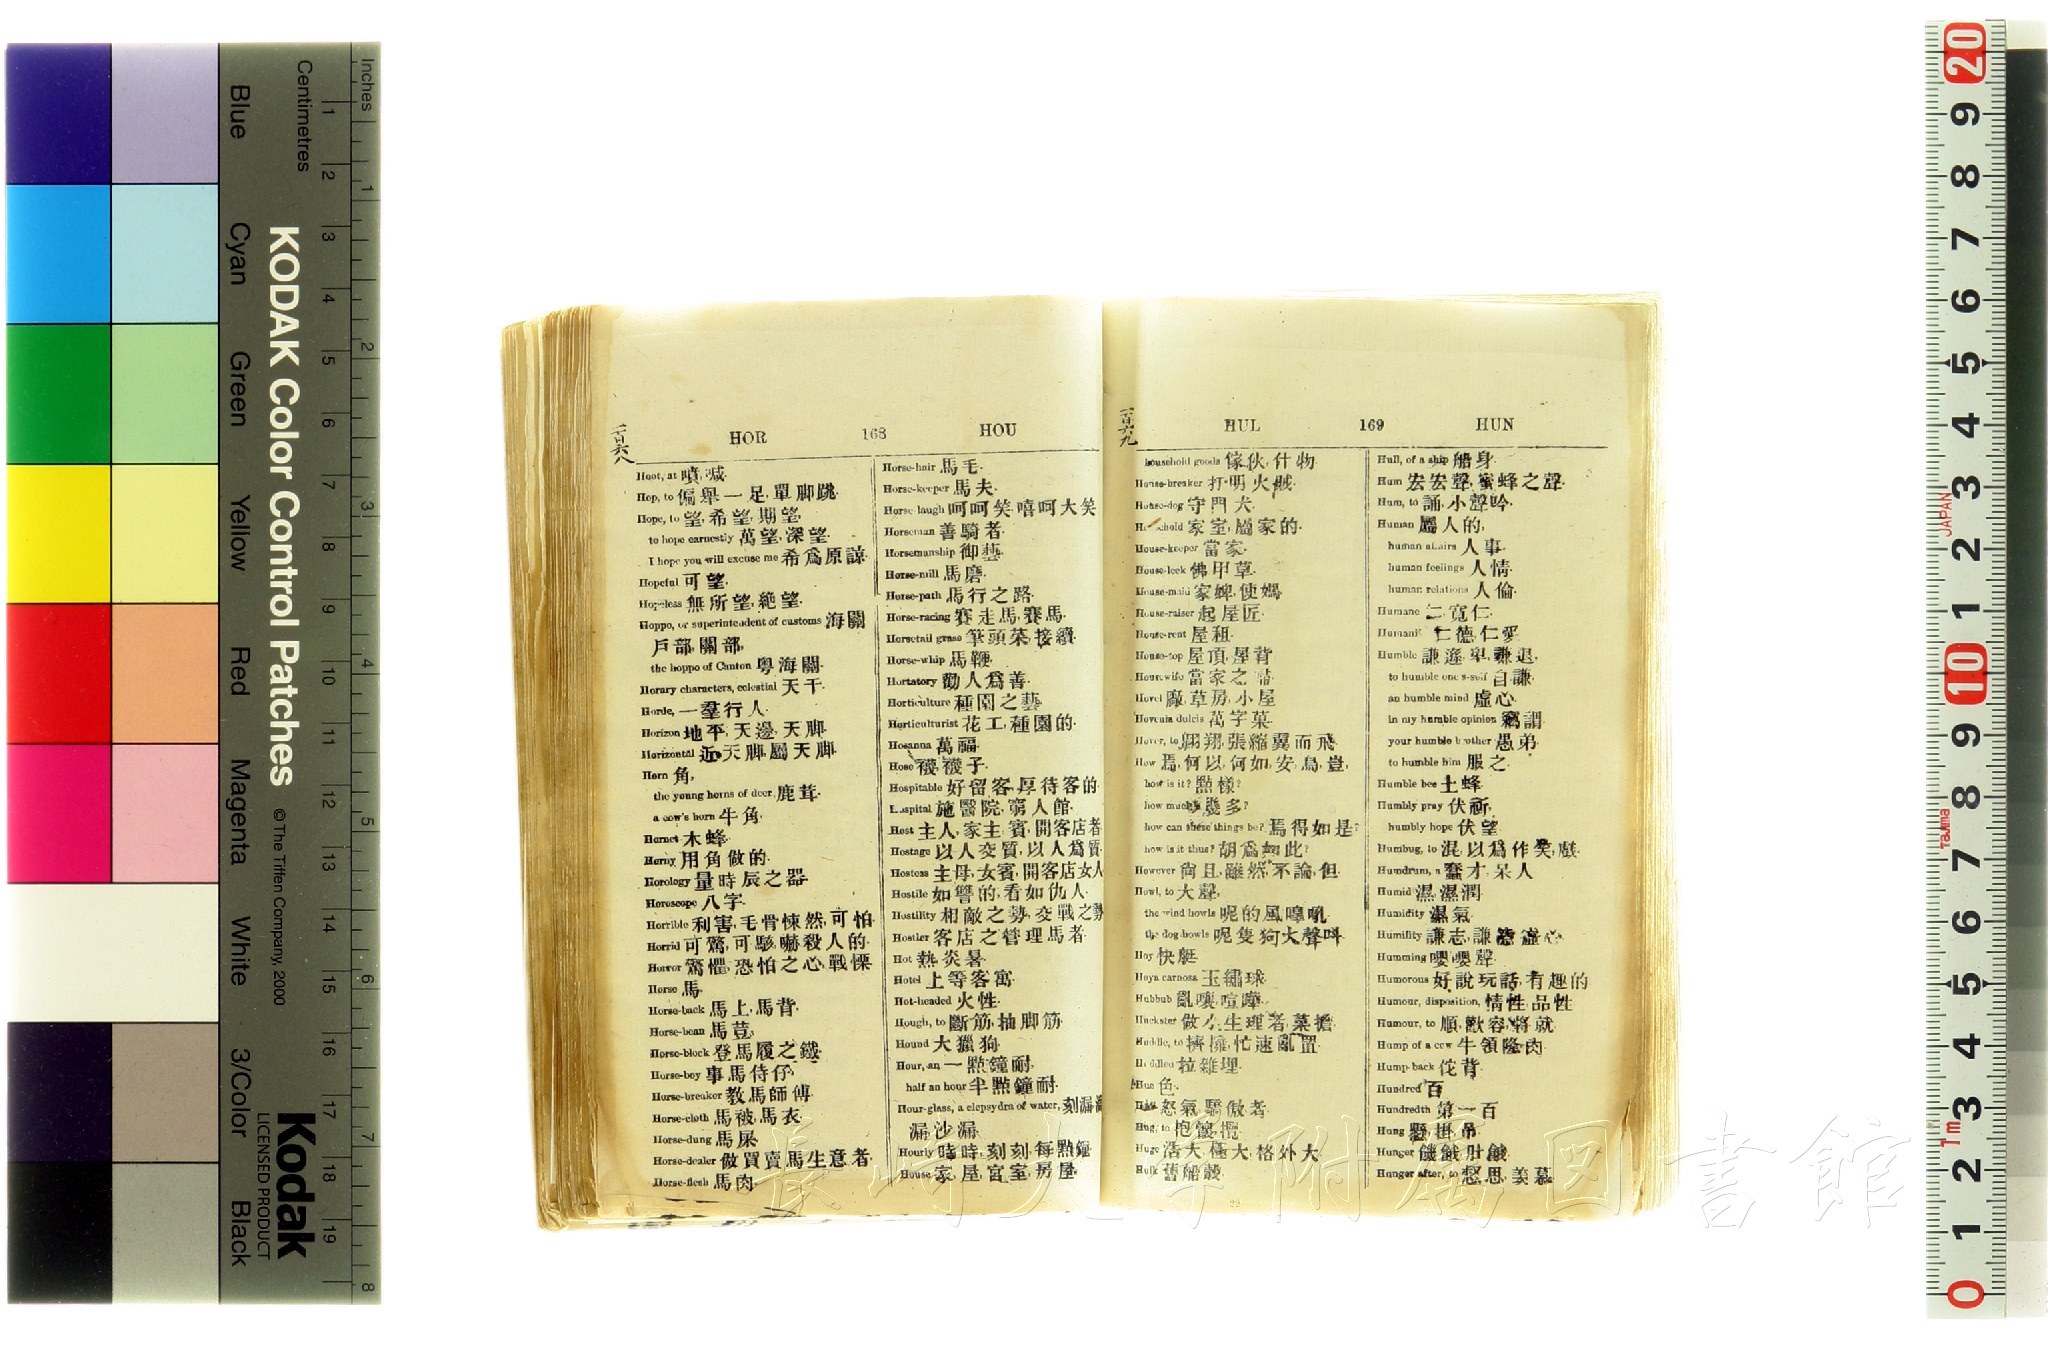 Inches
Centimetres
KODAK Color Control Patches
© The Tiffen Company, 2000
Kodak
LICENSED PRODUCT
Blue
Cyan
Green
Yellow
Red
Magenta
White
3/Color
Black
一百六八
HOR 168 HOU
Hoot, at 嘖, 喊.
Hop, to 偏舉一足, 單脚跳.
Hope, to 望, 希望, 期望.
to hope earnestly 萬望, 深望.
I hope you will excuse me 希爲原諒.
Hopeful 可望.
Hopeless 無所望, 絶望.
Hoppo, or superintendent of customs 海關
戶部, 關部,
the hoppo of Canton 粤海關.
Horary characters, celestial 天干.
Horde, 一羣行人.
Horizon 地平, 天邊, 天脚.
Horizontal 近天脚, 屬天脚.
Horn 角,
the young horns of deer, 鹿茸.
a cow's horn 牛角.
Hornet 木蜂.
Horny 用角做的.
Horology 量時辰之器.
Horoscope 八字.
Horrible 利害, 毛骨悚然, 可怕.
Horrid 可驚, 可駭, 嚇殺人的.
Horror 驚懼, 恐怕之心, 戰慄
Horse 馬.
Horse-back 馬上, 馬背.
Horse-bean 馬荳.
Horse-block 登馬履之鐵.
Horse-boy 事馬侍仔.
Horse-breaker 教馬師傅.
Horse-cloth 馬被, 馬衣.
Horse-dung 馬屎.
Horse-dealer 做買賣馬生意者.
Horse-flesh 馬肉.
Horse-hair 馬毛.
Horse-keeper 馬夫.
Horse-laugh 呵呵笑, 嘻呵大笑
Horseman 善騎者.
Horsemanship 御藝.
Horse-mill 馬磨.
Horse-path 馬行之路.
Horse-racing 賽走馬, 賽馬.
Horsetail grass 筆頭菜, 接續.
Horse-whip 馬鞭.
Hortatory 勸人爲善.
Horticulture 種園之藝.
Horticulturist 花工, 種園的.
Hosanna 萬福.
Hose 襪, 襪子.
Hospitable 好留客, 厚待客的.
Hospital 施醫院, 窮人館.
Host 主人, 家主, 賓, 開客店者
Hostage 以人交質, 以人爲質
Hostess 主母, 女賓, 開客店女人
Hostile 如讐的, 看如仇人.
Hostility 相敵之勢, 交戰之勢
Hostler 客店之管理馬者.
Hot 熱, 炎暑.
Hotel 上等客寓.
Hot-headed 火性.
Hough, to 斷筋, 抽脚筋.
Hound 大獵狗.
Hour, an 一點鐘耐.
half an hour 半點鐘耐.
Hour-glass, a clepsydra of water, 刻漏
漏沙漏.
Hourly 時時, 刻刻, 每點鐘
House 家, 屋, 宮室, 房屋
一百六九
HUL 169 HUN
household goods 傢伙, 什物.
House-breaker 打明火賊.
House-dog 守門犬.
Household 家室, 屬家的.
House-keeper 當家.
House-leek 佛甲草.
House-maid 家婢, 使媽.
House-raiser 起屋匠.
House-rent 屋租.
House-top 屋頂, 屋背.
Housewife 當家之
Hovel 廠, 草房, 小屋
Hovenia dulcis 萬字菓.
Hover, to 翺翔, 張縮翼而飛.
How 焉, 何以, 何如, 安, 烏, 豈,
how is it? 點樣?
how much? 幾多?
how can these things be? 焉得如是?
how is it thus? 胡爲如此?
However 尙且, 雖然, 不論, 但.
Howl, to 大聲.
the wind howls 呢的風嘷吼.
the dog howls 呢隻狗大聲呌.
Hoy 快艇
Hoya carnosa 玉繡球.
Hubbub 亂嚷, 喧嘩.
Huckster 做小生理者, 菜擔.
Huddle, to 擠擁, 忙速亂置.
Huddled 拉雜埋.
Hue 色.
怒氣, 驕傲者.
Hug, to 抱, 懷
Huge 浩大, 極大, 格外大.
Hulk 舊船殼.
22
Hull, of a ship 船身.
Hum 宏宏聲, 蜜蜂之聲.
Hum, to 誦, 小聲吟.
Human 屬人的,
human affairs 人事.
human feelings 人情.
human relations 人倫.
Humane 仁, 寬仁.
仁德, 仁愛.
Humble 謙遜, 卑, 謙退.
to humble one's-self 自謙.
an humble mind 虛心.
in my humble opinion 竊謂.
your humble brother 愚弟.
to humble him 服之.
Humble bee 土蜂.
Humbly pray 伏祈,
humbly hope 伏望.
Humbug, to 混, 以爲作笑, 戲.
Humdrum, a 蠢才, 呆人
Humid 濕, 濕潤.
Humidity 濕氣.
Humility 謙志, 謙
Humming 嚶嚶聲.
Humorous 好說玩話, 有趣的
Humour, disposition, 情性, 品性
Humour, to 順, 歡容, 將就.
Hump of a cow 牛領隆肉.
Hump-back 佗背.
Hundred 百
Hundredth 第一百
Hung 懸, 掛, 吊.
Hunger 饑餓, 肚餓.
Hunger after, to 慾思, 羡慕
長崎大学附属図書館
JAPAN
Tajima
1m